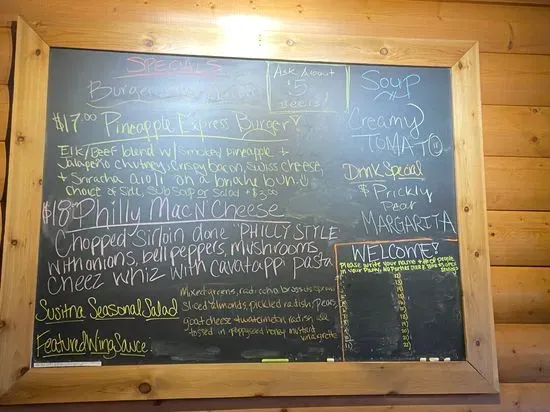 SPECIALS
Burger
$17.00 Pineapple Express Burger
Elk/Beef blend w/ Smoked pineapple +
Jalapeño chutney, Crispy bacon, Swiss cheese,
+ Sriracha aioli on a brioche bun
choice of Side, Sub Soup or Salad + $3.00
$18.00 Philly Mac N' Cheese
Chopped Sirloin done "PHILLY STYLE"
with onions, bell peppers, mushrooms,
cheez whiz with cavatappi pasta
Susitna Seasonal Salad
Mixed greens, radicchio, brussels sprouts
sliced almonds, pickled radish, pears,
goat cheese + watermelon radish
tossed in poppyseed honey mustard
vinaigrette
Featured Wing Sauce
Ask About
$5
Beers!
Soup
Creamy
TOMATO
Drink Special
$ Prickly
Pear
MARGARITA
WELCOME!
Please write your name + # of people
in your Party. No Parties